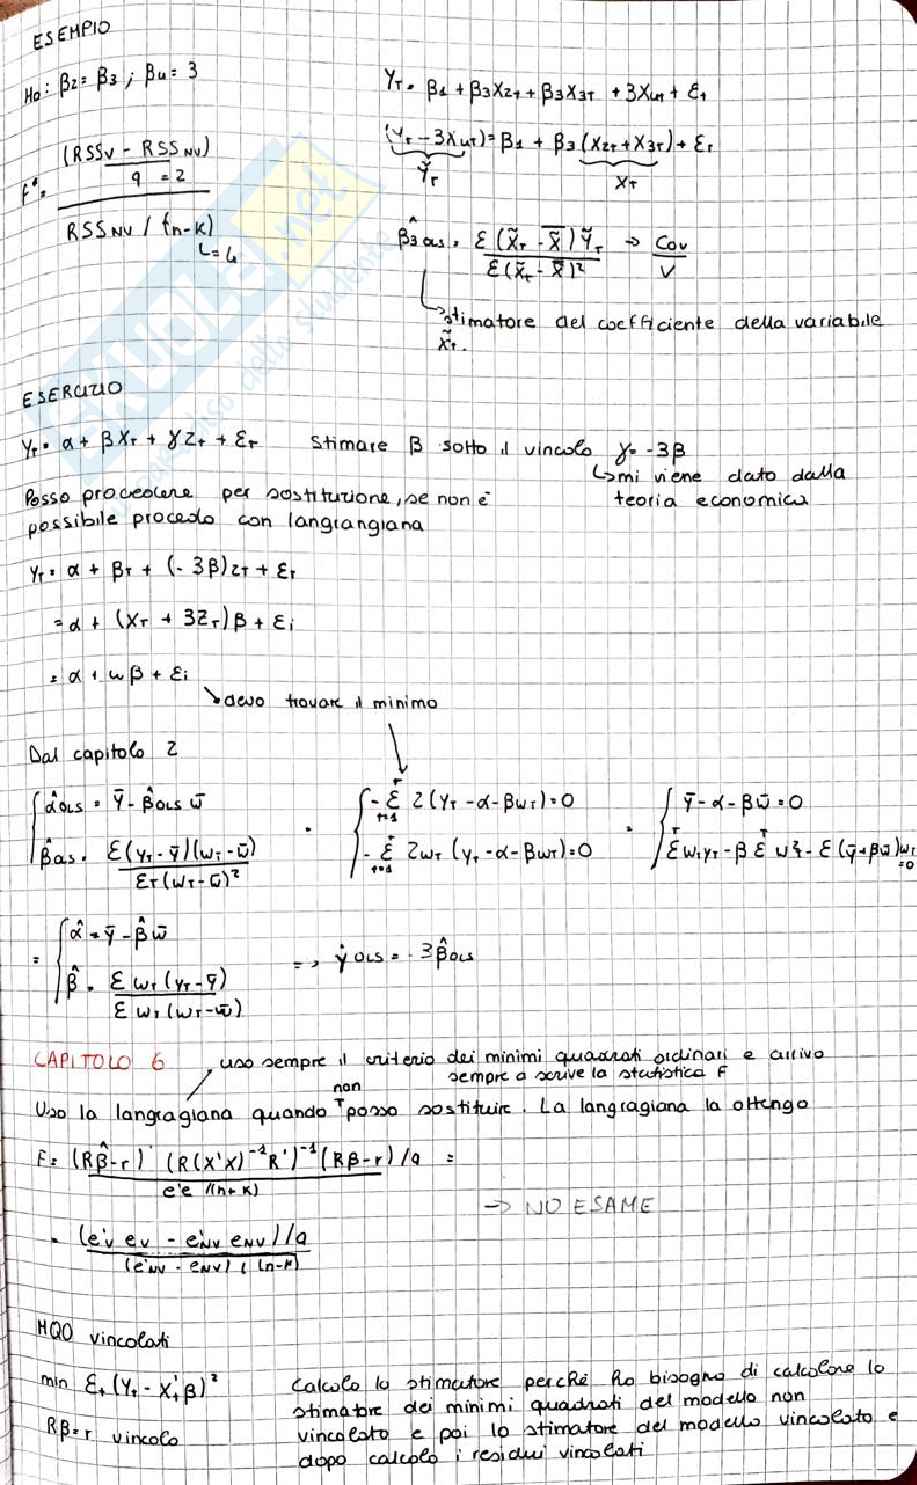 ESEMPIO
H₀: β₂ = β₃ ; β₄ = 3
Yₜ = β₁ + β₃X₂ₜ + β₃X₃ₜ + 3X₄ₜ + εₜ
(Yₜ - 3X₄ₜ) = β₁ + β₃(X₂ₜ + X₃ₜ) + εₜ
Ỹₜ
Xₜ
(RSSv - RSSNV)
q = 2
F*=
RSS NV / (n-k)
↳ = 4
β̂₃ OLS = Σ (X̃ₜ - X̃̄) Ỹₜ → Cov
Σ (X̃ₜ - X̃̄)² V
↳ stimatore del coefficiente della variabile
X̃ₜ.
SKUOLA.net
ESERCIZIO
Yₜ = α + βXₜ + γZₜ + εₜ Stimare β sotto il vincolo γ = -3β
↳ mi viene dato dalla
teoria economica
Posso procedere per sostituzione, se non è
possibile procedo con langrangiana
Yₜ = α + βₜ + (-3β)Zₜ + εₜ
= α + (Xₜ + 3Zₜ)β + εᵢ
= α + ωβ + εᵢ
↘ devo trovare il minimo
Dal capitolo 2
α̂OLS = Ȳ - β̂OLS ω̄
β̂OLS = Σ(Yₜ - Ȳ)(ωₜ - ω̄)
Σₜ(ωₜ - ω̄)²
- Σ 2(Yₜ - α - βωₜ) = 0
- Σ 2ωₜ (Yₜ - α - βωₜ) = 0
ȳ - α - βω̄ = 0
Σ ωₜYₜ - β Σ ω²ₜ - Σ (ȳ + βω̄)ωₜ = 0
= α̂ = ȳ - β̂ω̄
β̂ = Σ ωₜ (yₜ - ȳ)
Σ ωₜ (ωₜ - ω̄)
=> γ̂ OLS = -3β̂OLS
CAPITOLO 6 uso sempre il criterio dei minimi quadrati ordinari e arrivo
sempre a scrive la statistica F
Uso la langragiana quando non posso sostituire. La langragiana la ottengo
F = (Rβ̂-r)' (R(X'X)⁻¹R')⁻¹ (Rβ-r)/q =
e'e /(n-K)
→ NO ESAME
= (e'v ev - e'NV eNV)/q
(e'NV - eNV) / (n-K)
MQO vincolati
min Σₜ (Yₜ - X'ᵢβ)²
Rβ=r vincolo
Calcolo lo stimatore perché ho bisogno di calcolare lo
stimatore dei minimi quadrati del modello non
vincolato e poi lo stimatore del modello vincolato e
dopo calcolo i residui vincolati